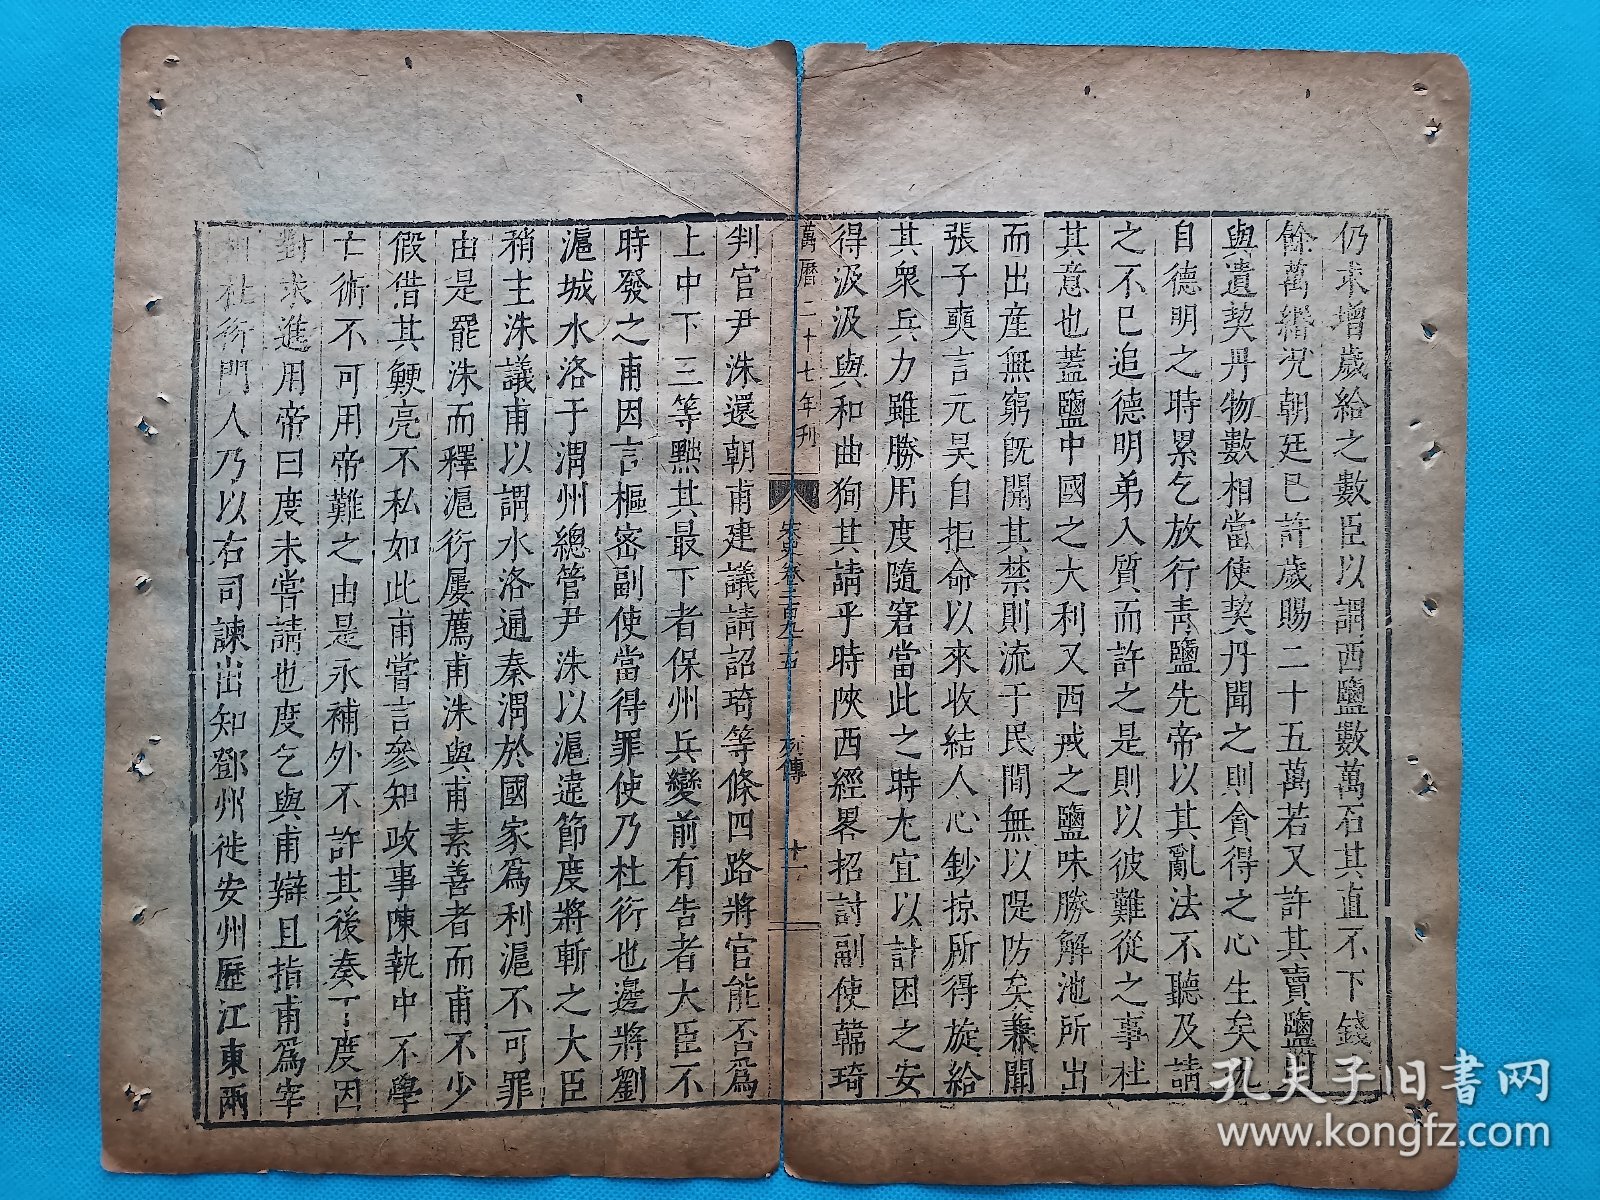 仍未增歲給之數臣以謂西鹽數萬石其直不下錢
餘萬緡況朝廷已許歲賜二十五萬若又許其賣鹽則
與遺契丹物數相當使契丹聞之則貪得之心生矣况
自德明之時累乞放行青鹽先帝以其亂法不聽及請
之不已追德明弟入質而許之是則以彼難從之事杜
其意也蓋鹽中國之大利又西戎之鹽味勝解池所出
而出産無窮既開其禁則流于民間無以隄防矣兼聞
張子奭言元昊自拒命以來收結人心鈔掠所得旋給
其衆兵力雖勝用度隨窘當此之時尤宜以計困之安
得汲汲與和曲狥其請乎時陝西經畧招討副使韓琦
萬曆二十七年刊
宋史卷二百九十五
列傳
十一
判官尹洙還朝甫建議請詔琦等條四路將官能否爲
上中下三等黜其最下者保州兵變前有告者大臣不
時發之甫因言樞密副使當得罪使乃杜衍也邊將劉
滬城水洛于渭州總管尹洙以滬違節度將斬之大臣
稍主洙議甫以謂水洛通秦渭於國家爲利滬不可罪
由是罷洙而釋滬衍屢薦甫洙與甫素善者而甫不少
假借其鯁亮不私如此甫嘗言參知政事陳執中不學
亡術不可用帝難之由是求補外不許其後奏丁度因
對求進用帝曰度未嘗請也度乞與甫辯且指甫爲宰
相杜衍門人乃以右司諫出知鄧州徙安州歷江東兩
孔夫子旧书网
www.kongfz.com